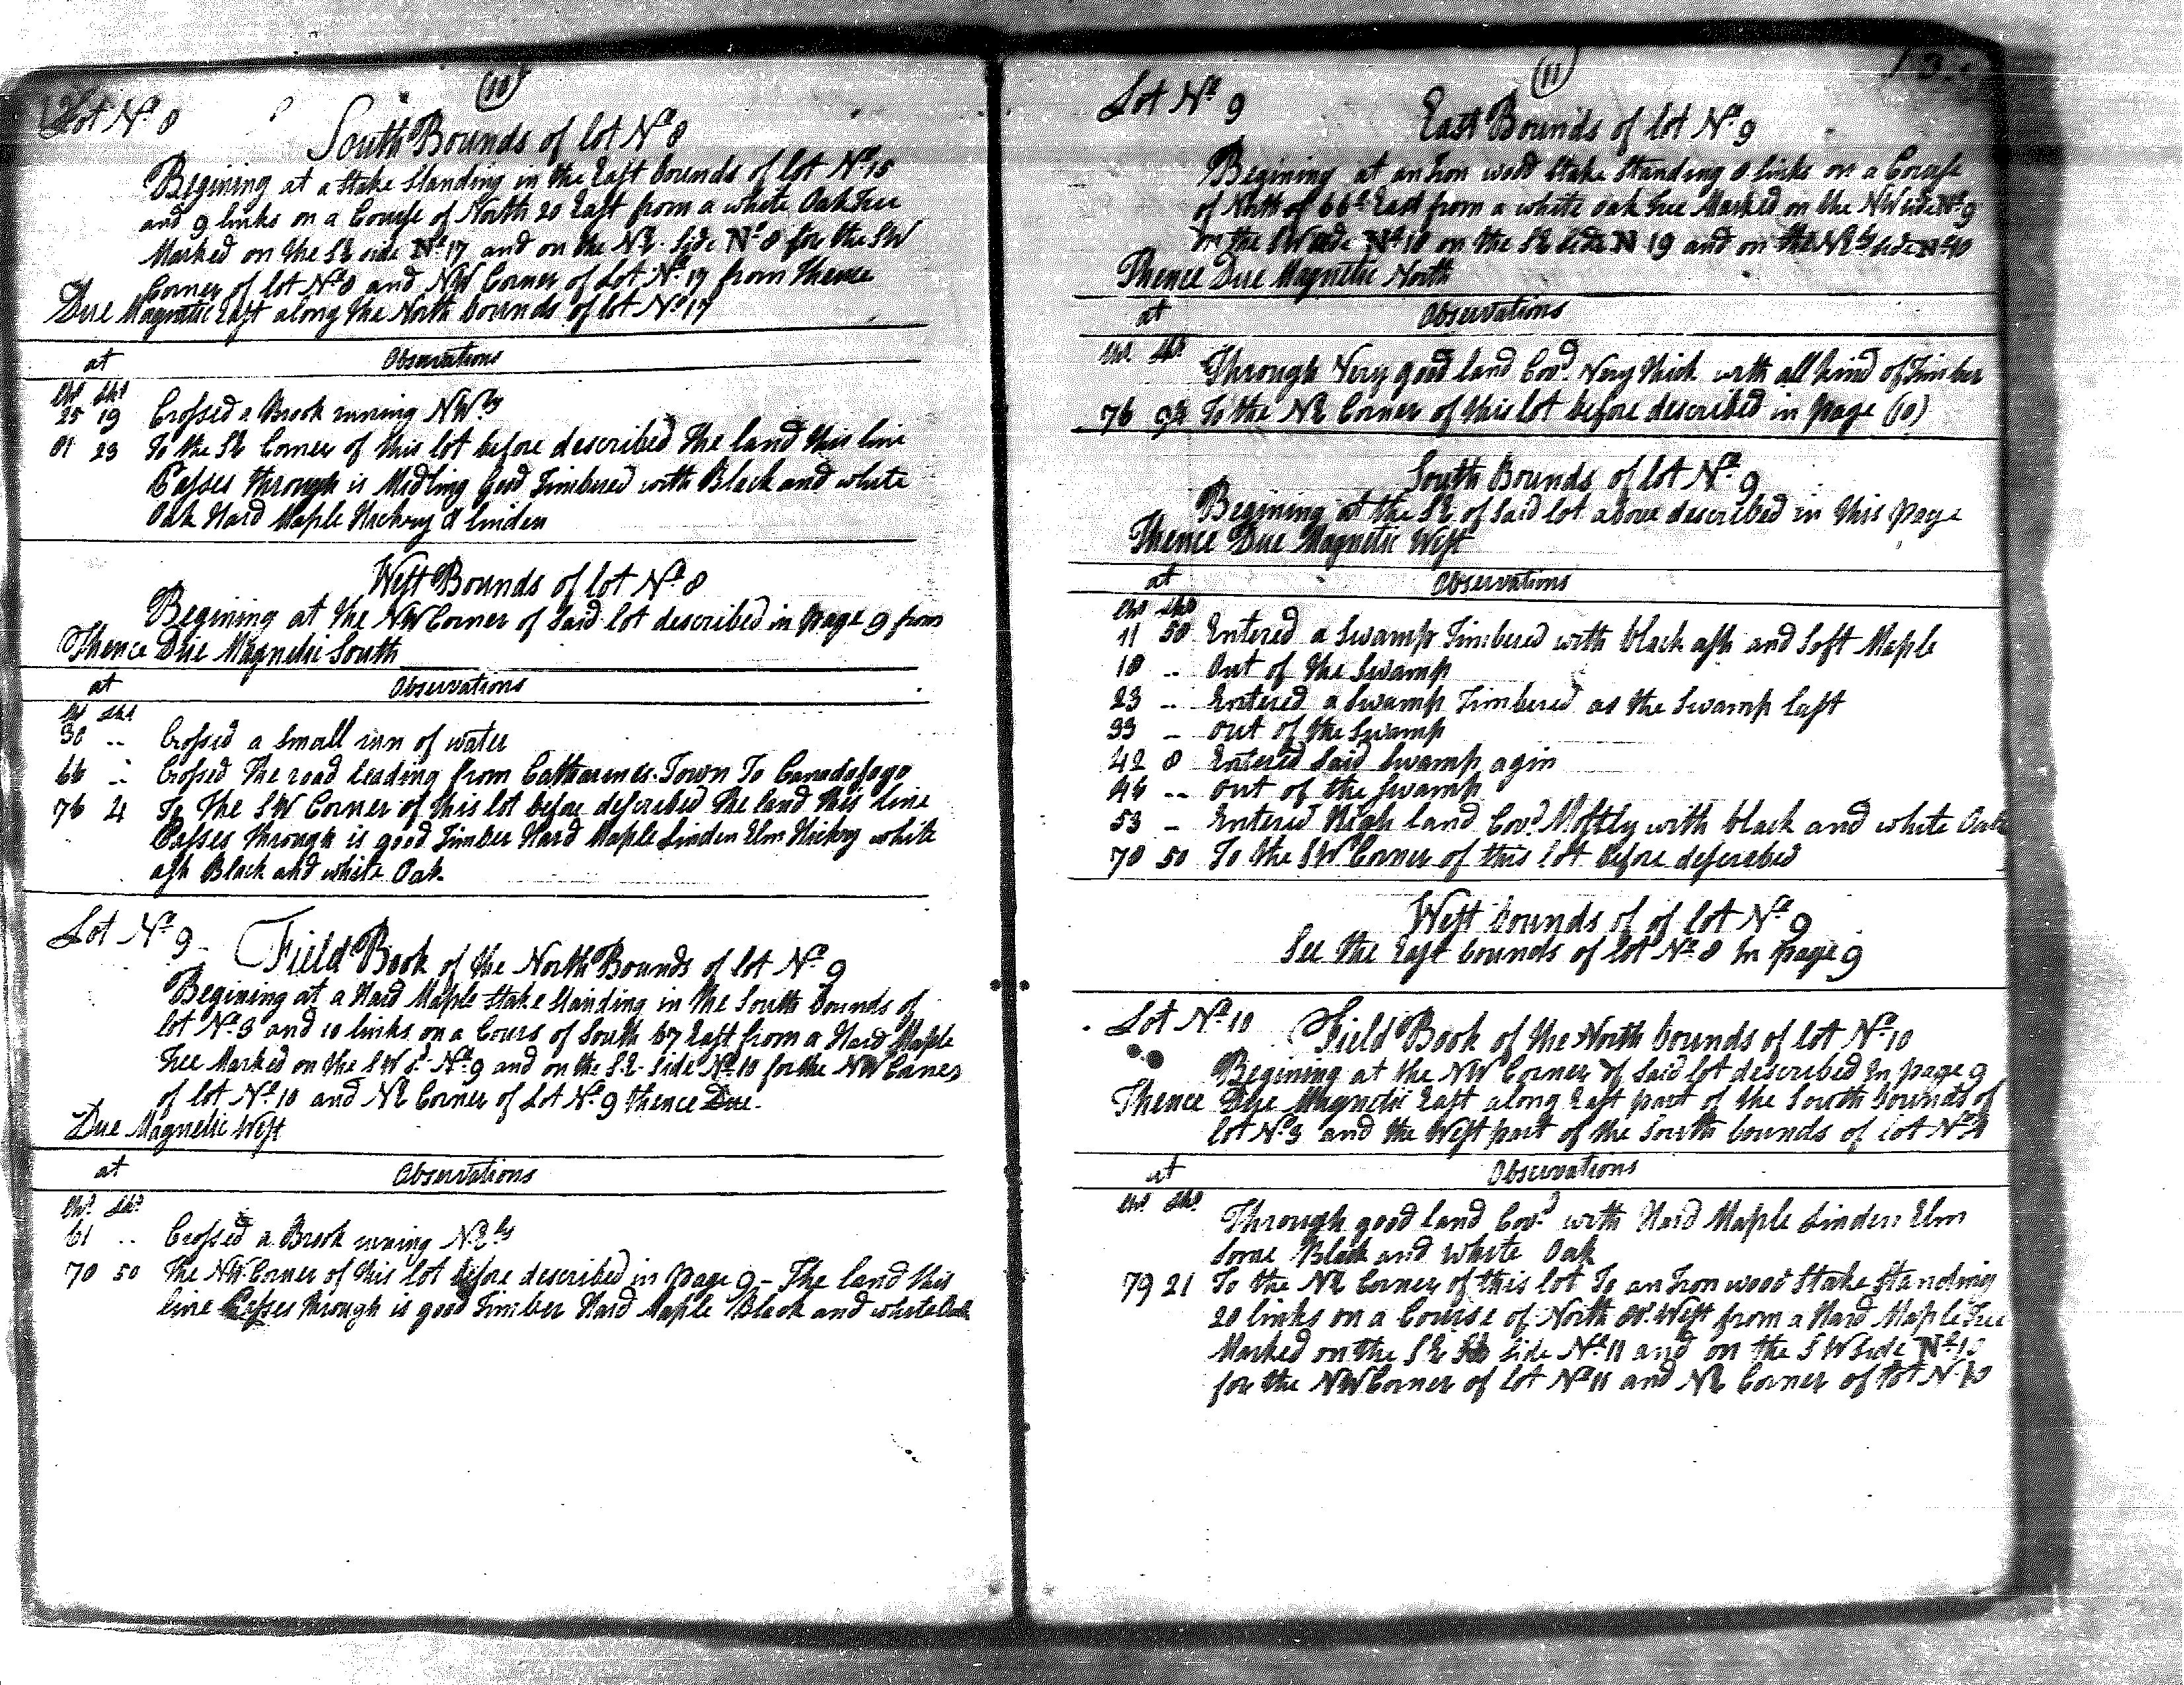 (10)
Lot No 8
South Bounds of lot No 8
Begining at a Stake Standing in the East bounds of lot No 15
and 9 links on a Course of North 20 East from a white Oak Tree
Marked on the SE side No 17 and on the NE Side No 8 for the SW
Corner of lot No 8 and NW Corner of Lot No 17 from Thence
Due Magnetic East along the North bounds of lot No 17
at Observations
Chs Lks
25 19 Crossed a Brook runing NWly
81 23 To the SE Corner of this lot before described The land this line
Passes through is Midling good Timbered with Black and white
Oak Hard Maple Hickory & linden
West Bounds of lot No 8
Begining at the NW Corner of Said lot described in page 9 from
Thence Due Magnetic South
at Observations
Chs Lks
30 .. Crossed a Small run of water
66 .. Crossed the road leading from Catharines Town To Canadasago
76 4 To The SW Corner of this lot before described the land this line
Passes through is good Timber Hard Maple Linden Elm Hickry white
ash Black and white Oak
Lot No 9
Field Book of the North Bounds of lot No 9
Begining at a Hard Maple Stake Standing in the South bounds of
lot No 3 and 10 links on a Cours of South 67 East from a Hard Maple
Tree Marked on the SW s. No 9 and on the SE Side No 10 for the NW Corner
of lot No 10 and NE Corner of Lot No 9 thence Due
Due Magnetic West
at Observations
Chs Lks
61 .. Crossed a Brook runing NEly
70 50 The NW Corner of this lot before described in page 9 - The land this
line Passes through is good Timber Hard Maple Black and white Oak
(11)
Lot No 9
East Bounds of lot No 9
Begining at an Iron wood Stake Standing 8 links on a Course
of North of 66d East from a white oak Tree Marked on the NW side No 9
on the SW side No 18 on the SE Side N 19 and on the NEly side No 10
Thence Due Magnetic North
at Observations
Chs Lks
Through Very good land Covd Very thick with all kind of Timber
76 To the NE Corner of this lot before described in page (10)
South Bounds of lot No 9
Begining at the SE of Said lot above described in this page
Thence Due Magnetic West
at Observations
Chs Lks
11 50 Entered a Swamp Timbered with black ash and Soft Maple
18 .. Out of the Swamp
23 .. Entered a Swamp Timbered as the Swamp last
33 - out of the Swamp
42 8 Entered Said Swamp agin
46 .. out of the Swamp
53 - Entered High land Covd Mostly with black and white Oak
70 50 To the SW Corner of this lot before described
West bounds of of lot No 9
See the East bounds of lot No 8 In page 9
Lot No 10
Field Book of the North bounds of lot No 10
Begining at the NW Corner of Said lot described In page 9
Thence Due Magnetic East along East part of the South bounds of
lot No 3 and the West part of the South bounds of lot No 4
at Observations
Chs Lks
Through good land Covd with Hard Maple Linden Elm
Some Black and White Oak
79 21 To the NE Corner of this lot To an Iron wood Stake Standing
20 links on a Course of North West from a Hard Maple Tree
Marked on the SE side No 11 and on the SW Side No 10
for the NW Corner of lot No 11 and NE Corner of lot N 10